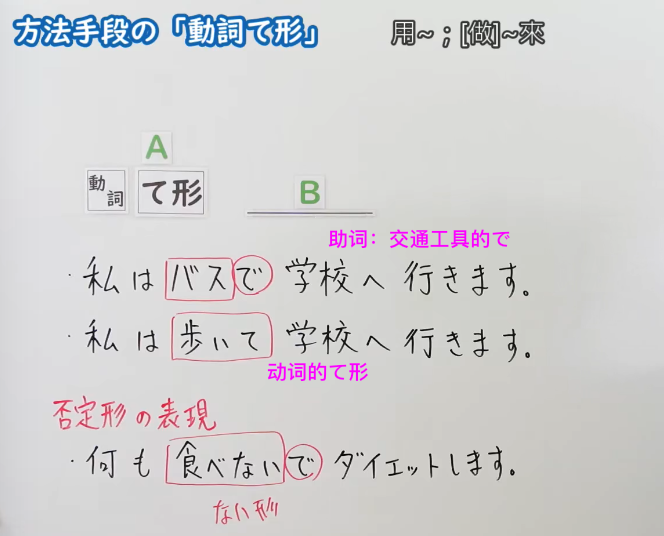 方法手段の「動詞て形」 用~；[做]~來
A
動詞 て形 B
助词：交通工具的で
・私は バスで 学校へ 行きます。
・私は 歩いて 学校へ 行きます。
动词的て形
否定形の表現
・何も 食べないで ダイエットします。
ない形